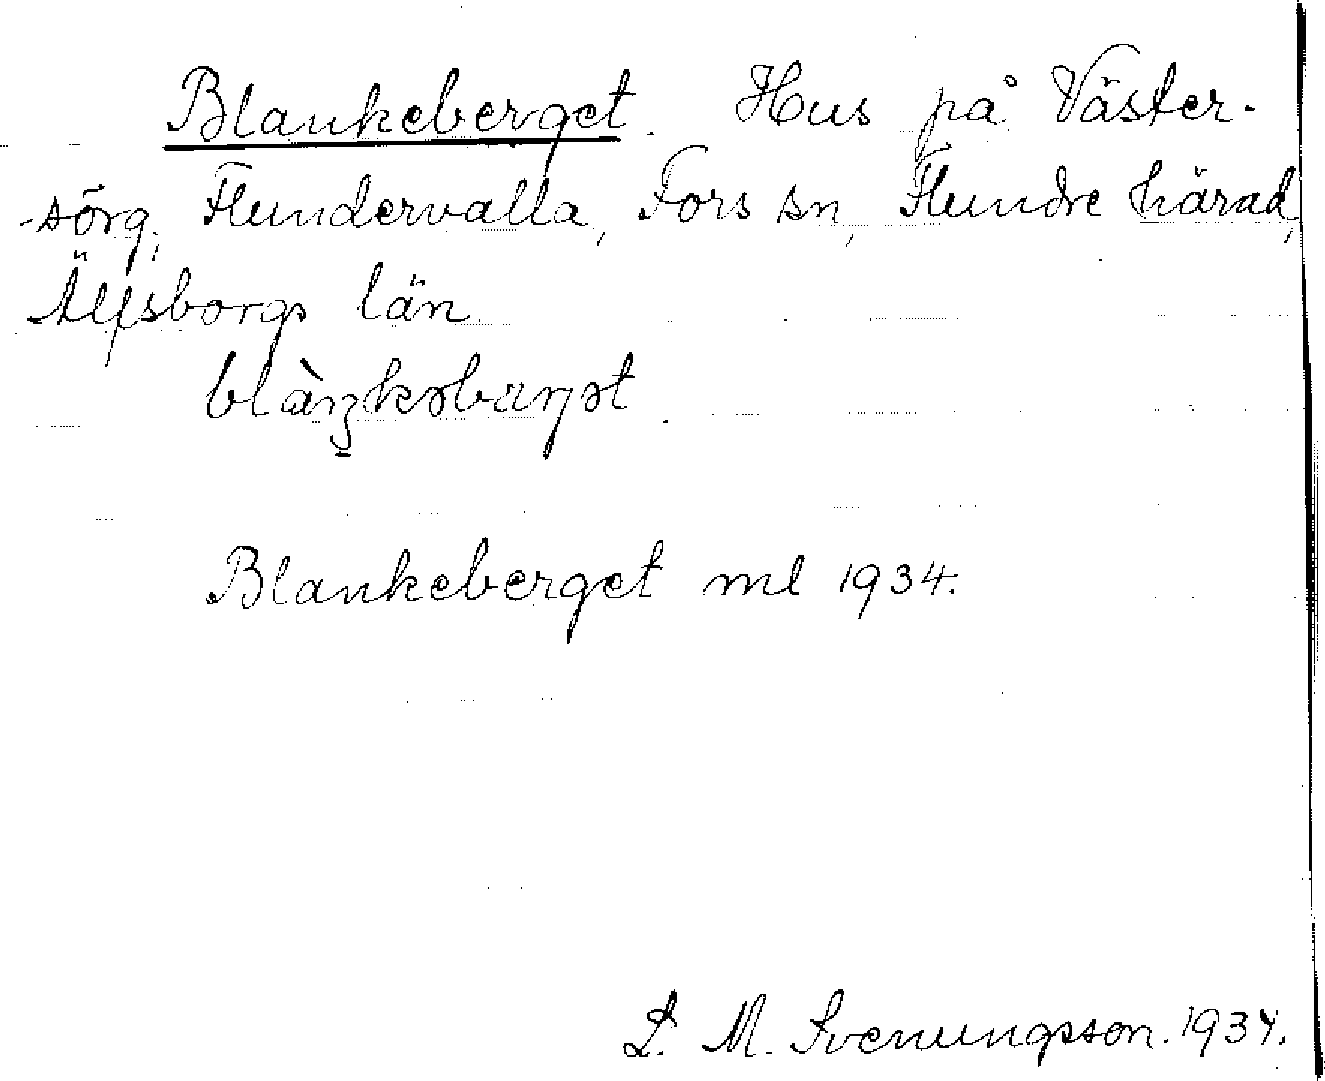 Blankeberget. Hus på Väster-
-sörg, Flundervalla, Fors sn, Flundre härad,
Älfsborgs län
blàŋkəbærjət.
Blankeberget ml 1934.
L. M. Svenungsson. 1934.